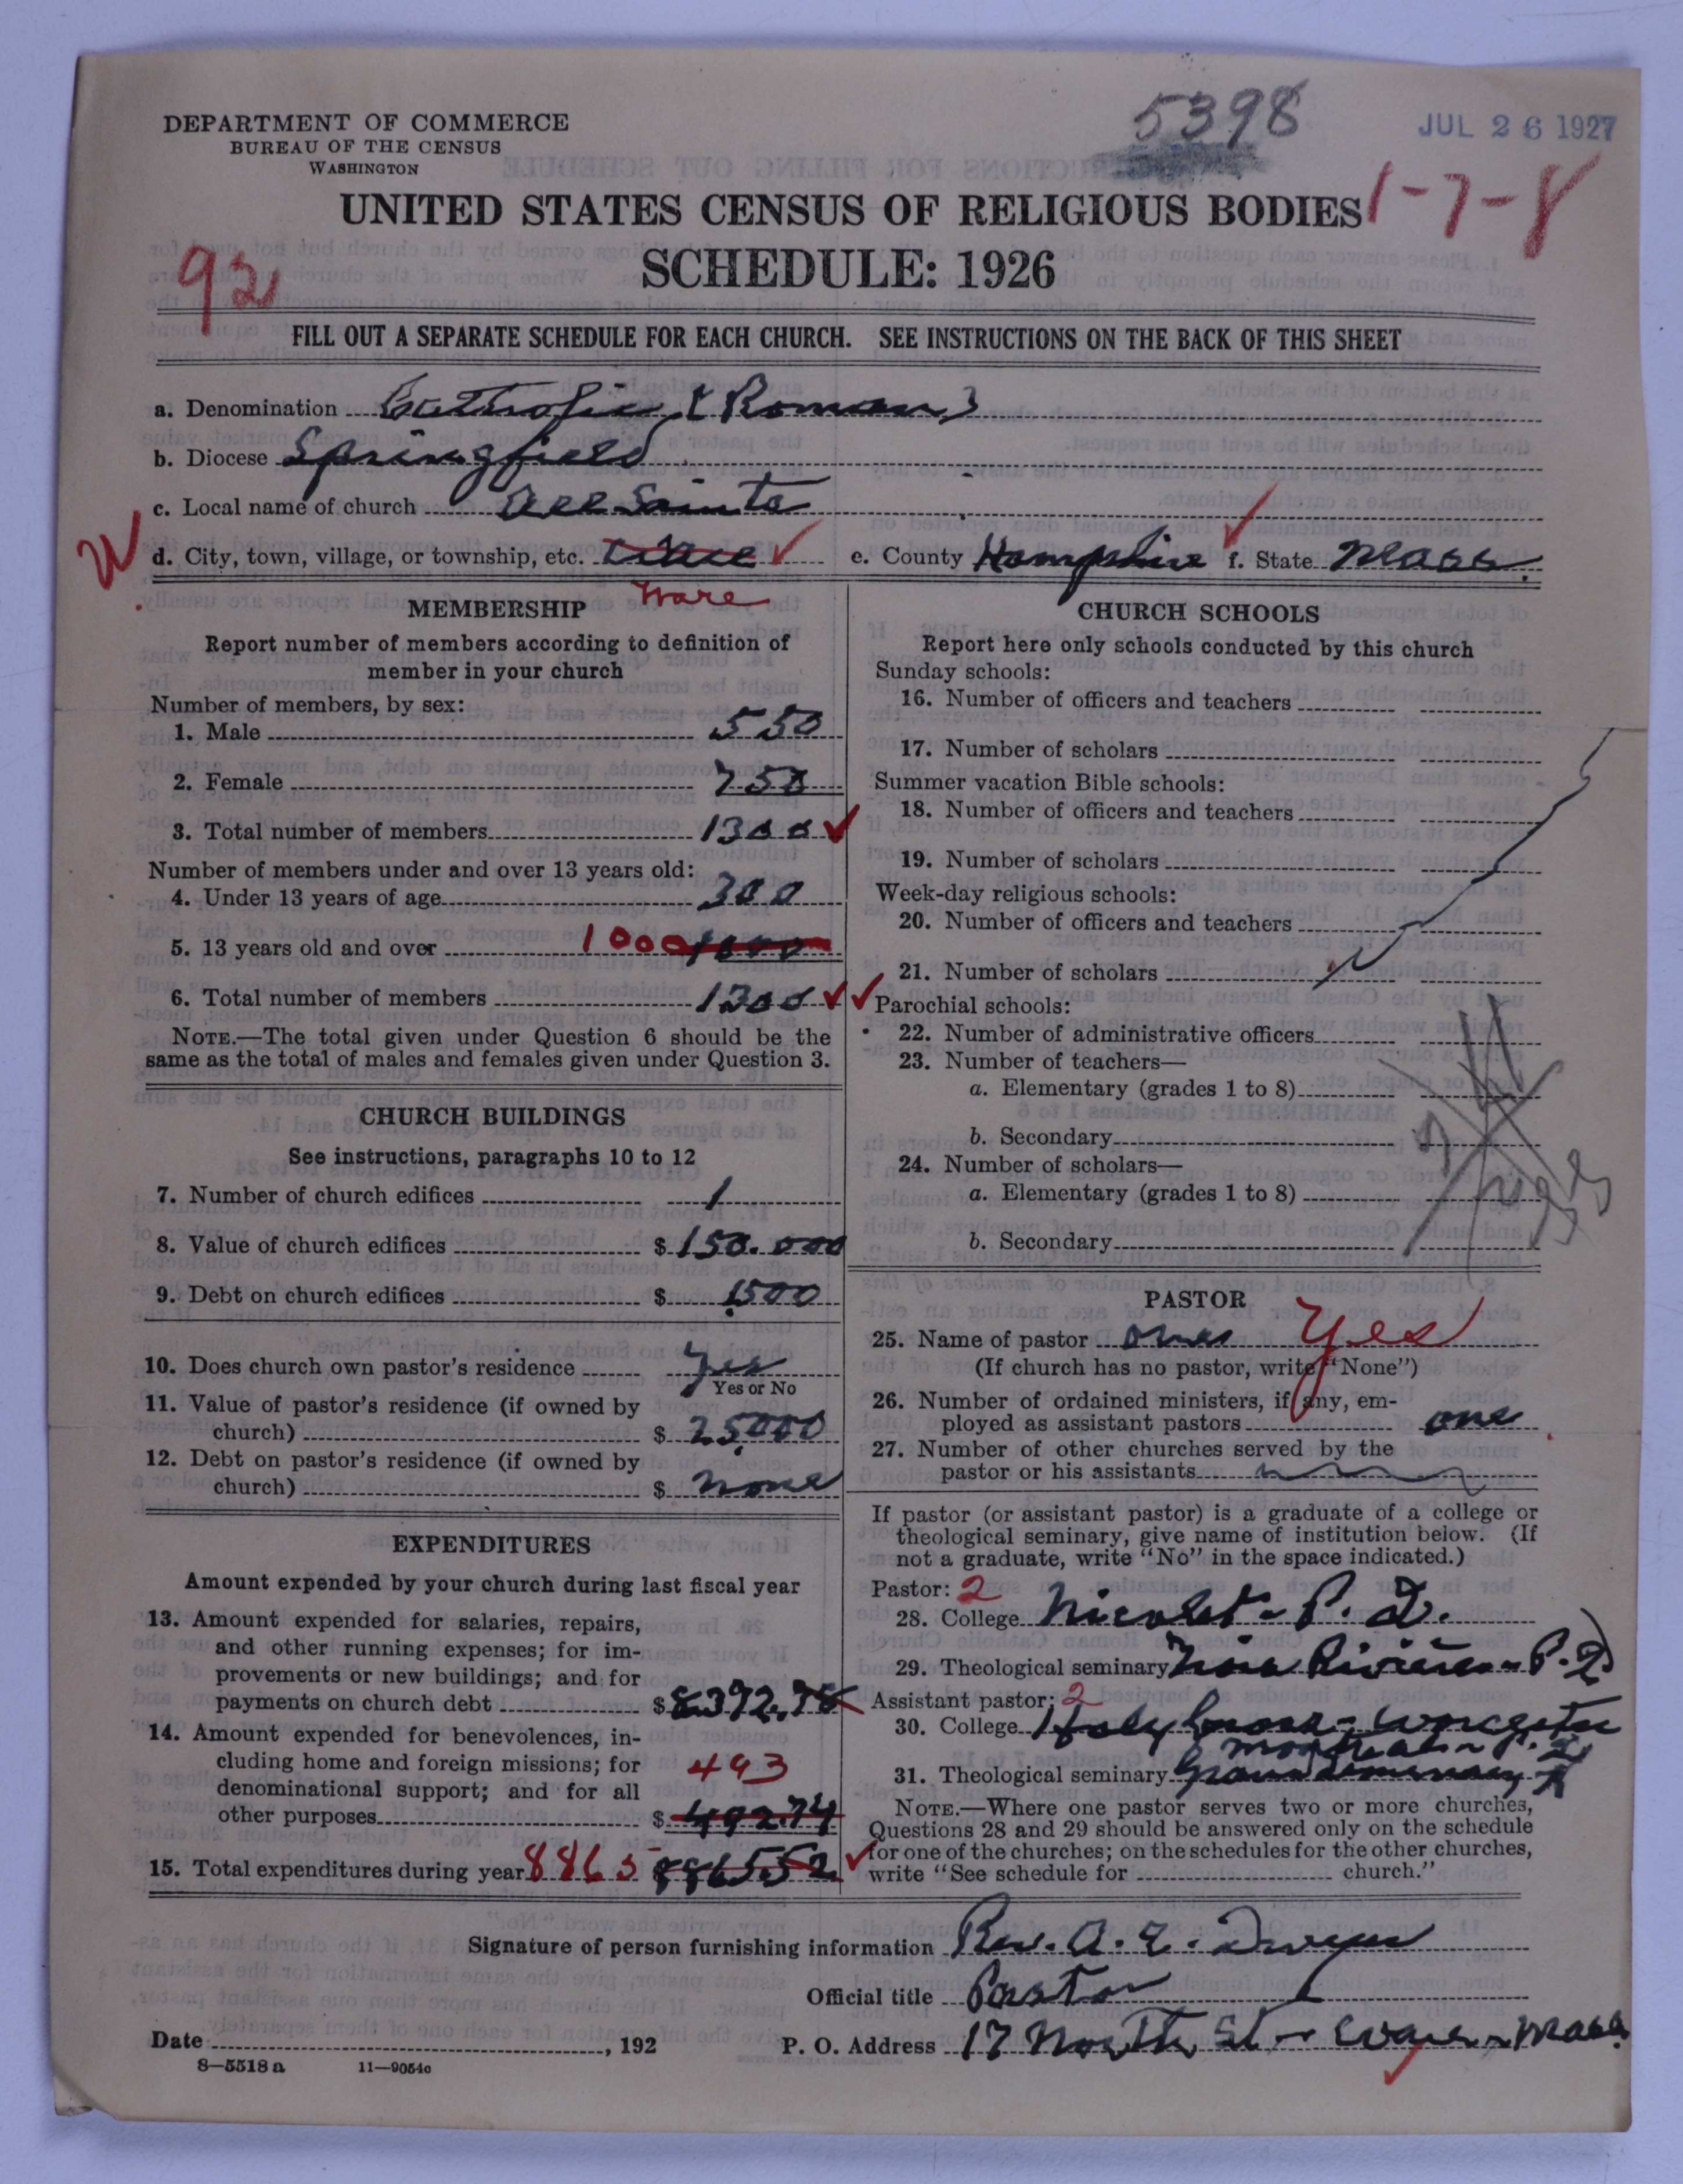 5398
JUL 26 1927
DEPARTMENT OF COMMERCE
BUREAU OF THE CENSUS
WASHINGTON
UNITED STATES CENSUS OF RELIGIOUS BODIES
1-7-8
SCHEDULE: 1926
92
FILL OUT A SEPARATE SCHEDULE FOR EACH CHURCH. SEE INSTRUCTIONS ON THE BACK OF THIS SHEET
a. Denomination Catholic (Roman)
b. Diocese Springfield
c. Local name of church All Saints
d. City, town, village, or township, etc. Ware
e. County Hampshire f. State Mass.
MEMBERSHIP
Report number of members according to definition of
member in your church
Number of members, by sex:
1. Male 550
2. Female 750
3. Total number of members 1300
Number of members under and over 13 years old:
4. Under 13 years of age 300
5. 13 years old and over 1000 1000
6. Total number of members 1300
NOTE.—The total given under Question 6 should be the
same as the total of males and females given under Question 3.
CHURCH BUILDINGS
See instructions, paragraphs 10 to 12
7. Number of church edifices 1
8. Value of church edifices $ 150.000
9. Debt on church edifices $ 1500
10. Does church own pastor's residence Yes
Yes or No
11. Value of pastor's residence (if owned by
church) $ 25000
12. Debt on pastor's residence (if owned by
church) $ none
EXPENDITURES
Amount expended by your church during last fiscal year
13. Amount expended for salaries, repairs,
and other running expenses; for im-
provements or new buildings; and for
payments on church debt $ 8372.78
14. Amount expended for benevolences, in-
cluding home and foreign missions; for 493
denominational support; and for all
other purposes $ 492.74
15. Total expenditures during year 8865 8865.52
CHURCH SCHOOLS
Report here only schools conducted by this church
Sunday schools:
16. Number of officers and teachers
17. Number of scholars
Summer vacation Bible schools:
18. Number of officers and teachers
19. Number of scholars
Week-day religious schools:
20. Number of officers and teachers
21. Number of scholars
Parochial schools:
22. Number of administrative officers
23. Number of teachers—
a. Elementary (grades 1 to 8)
b. Secondary
24. Number of scholars—
a. Elementary (grades 1 to 8)
b. Secondary
PASTOR
25. Name of pastor Yes
(If church has no pastor, write "None")
26. Number of ordained ministers, if any, em-
ployed as assistant pastors one
27. Number of other churches served by the
pastor or his assistants
If pastor (or assistant pastor) is a graduate of a college or
theological seminary, give name of institution below. (If
not a graduate, write "No" in the space indicated.)
Pastor: 2
28. College Nicolet - P. Q.
29. Theological seminary Rivières - P. Q.
Assistant pastor: 2
30. College Holy Cross - Worcester
Montreal - P. Q.
31. Theological seminary Grand Seminary
NOTE.—Where one pastor serves two or more churches,
Questions 28 and 29 should be answered only on the schedule
for one of the churches; on the schedules for the other churches,
write "See schedule for church."
Signature of person furnishing information Rev. A. E. Dwyer
Official title Pastor
Date , 192
P. O. Address 17 North St - Ware - Mass.
8—5518 a 11—9054c